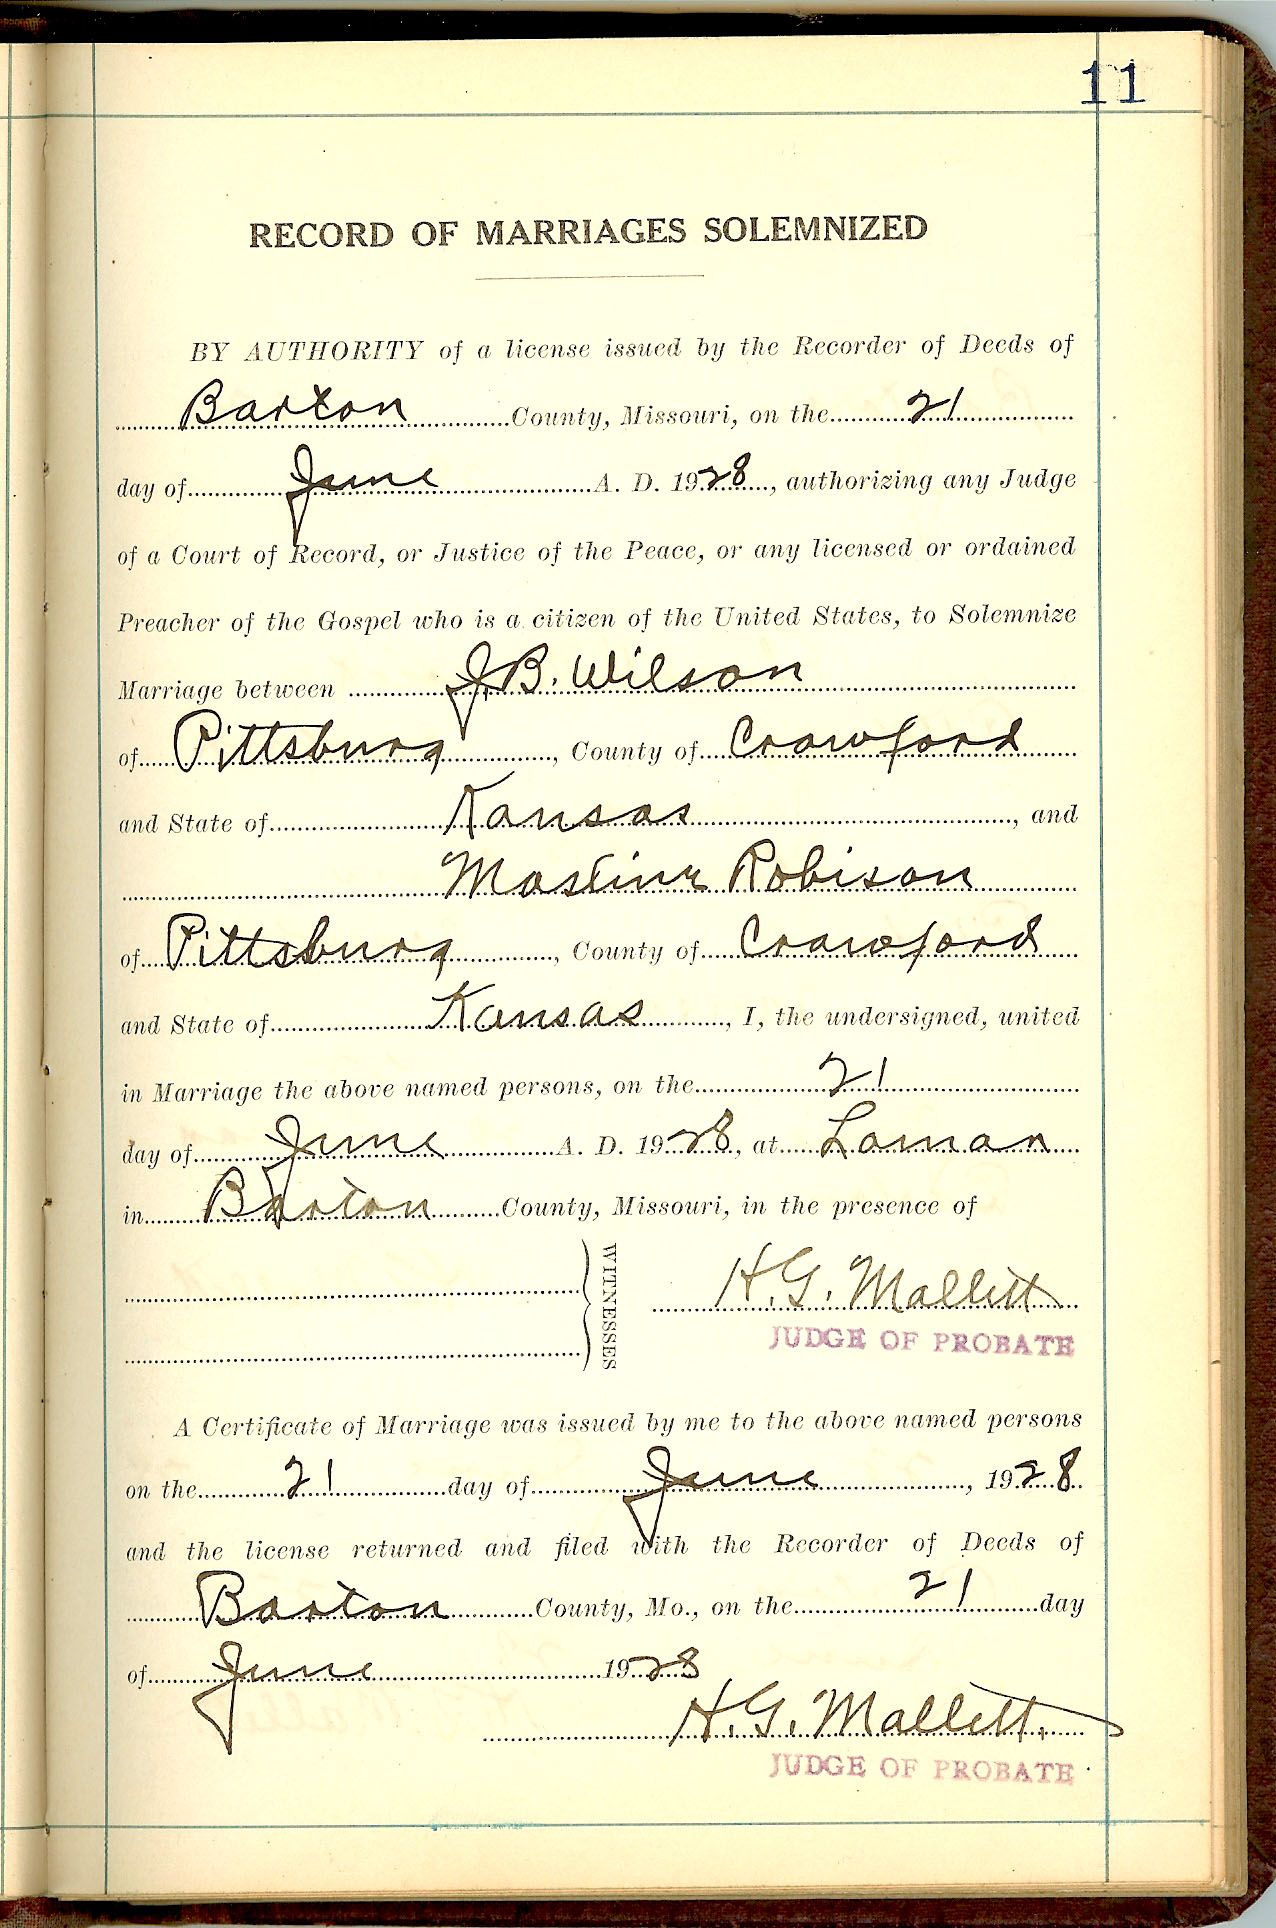 11
RECORD OF MARRIAGES SOLEMNIZED
BY AUTHORITY of a license issued by the Recorder of Deeds of
Barton County, Missouri, on the 21
day of June A. D. 1928, authorizing any Judge
of a Court of Record, or Justice of the Peace, or any licensed or ordained
Preacher of the Gospel who is a citizen of the United States, to Solemnize
Marriage between J.B. Wilson
of Pittsburg, County of Crawford
and State of Kansas, and
Robison
of Pittsburg, County of Crawford
and State of Kansas, I, the undersigned, united
in Marriage the above named persons, on the 21
day of June A. D. 1928, at Lamar
in Barton County, Missouri, in the presence of
WITNESSES
H.G. Mallett
JUDGE OF PROBATE
A Certificate of Marriage was issued by me to the above named persons
on the 21 day of June, 1928
and the license returned and filed with the Recorder of Deeds of
Barton County, Mo., on the 21 day
of June 1928
H.G. Mallett.
JUDGE OF PROBATE